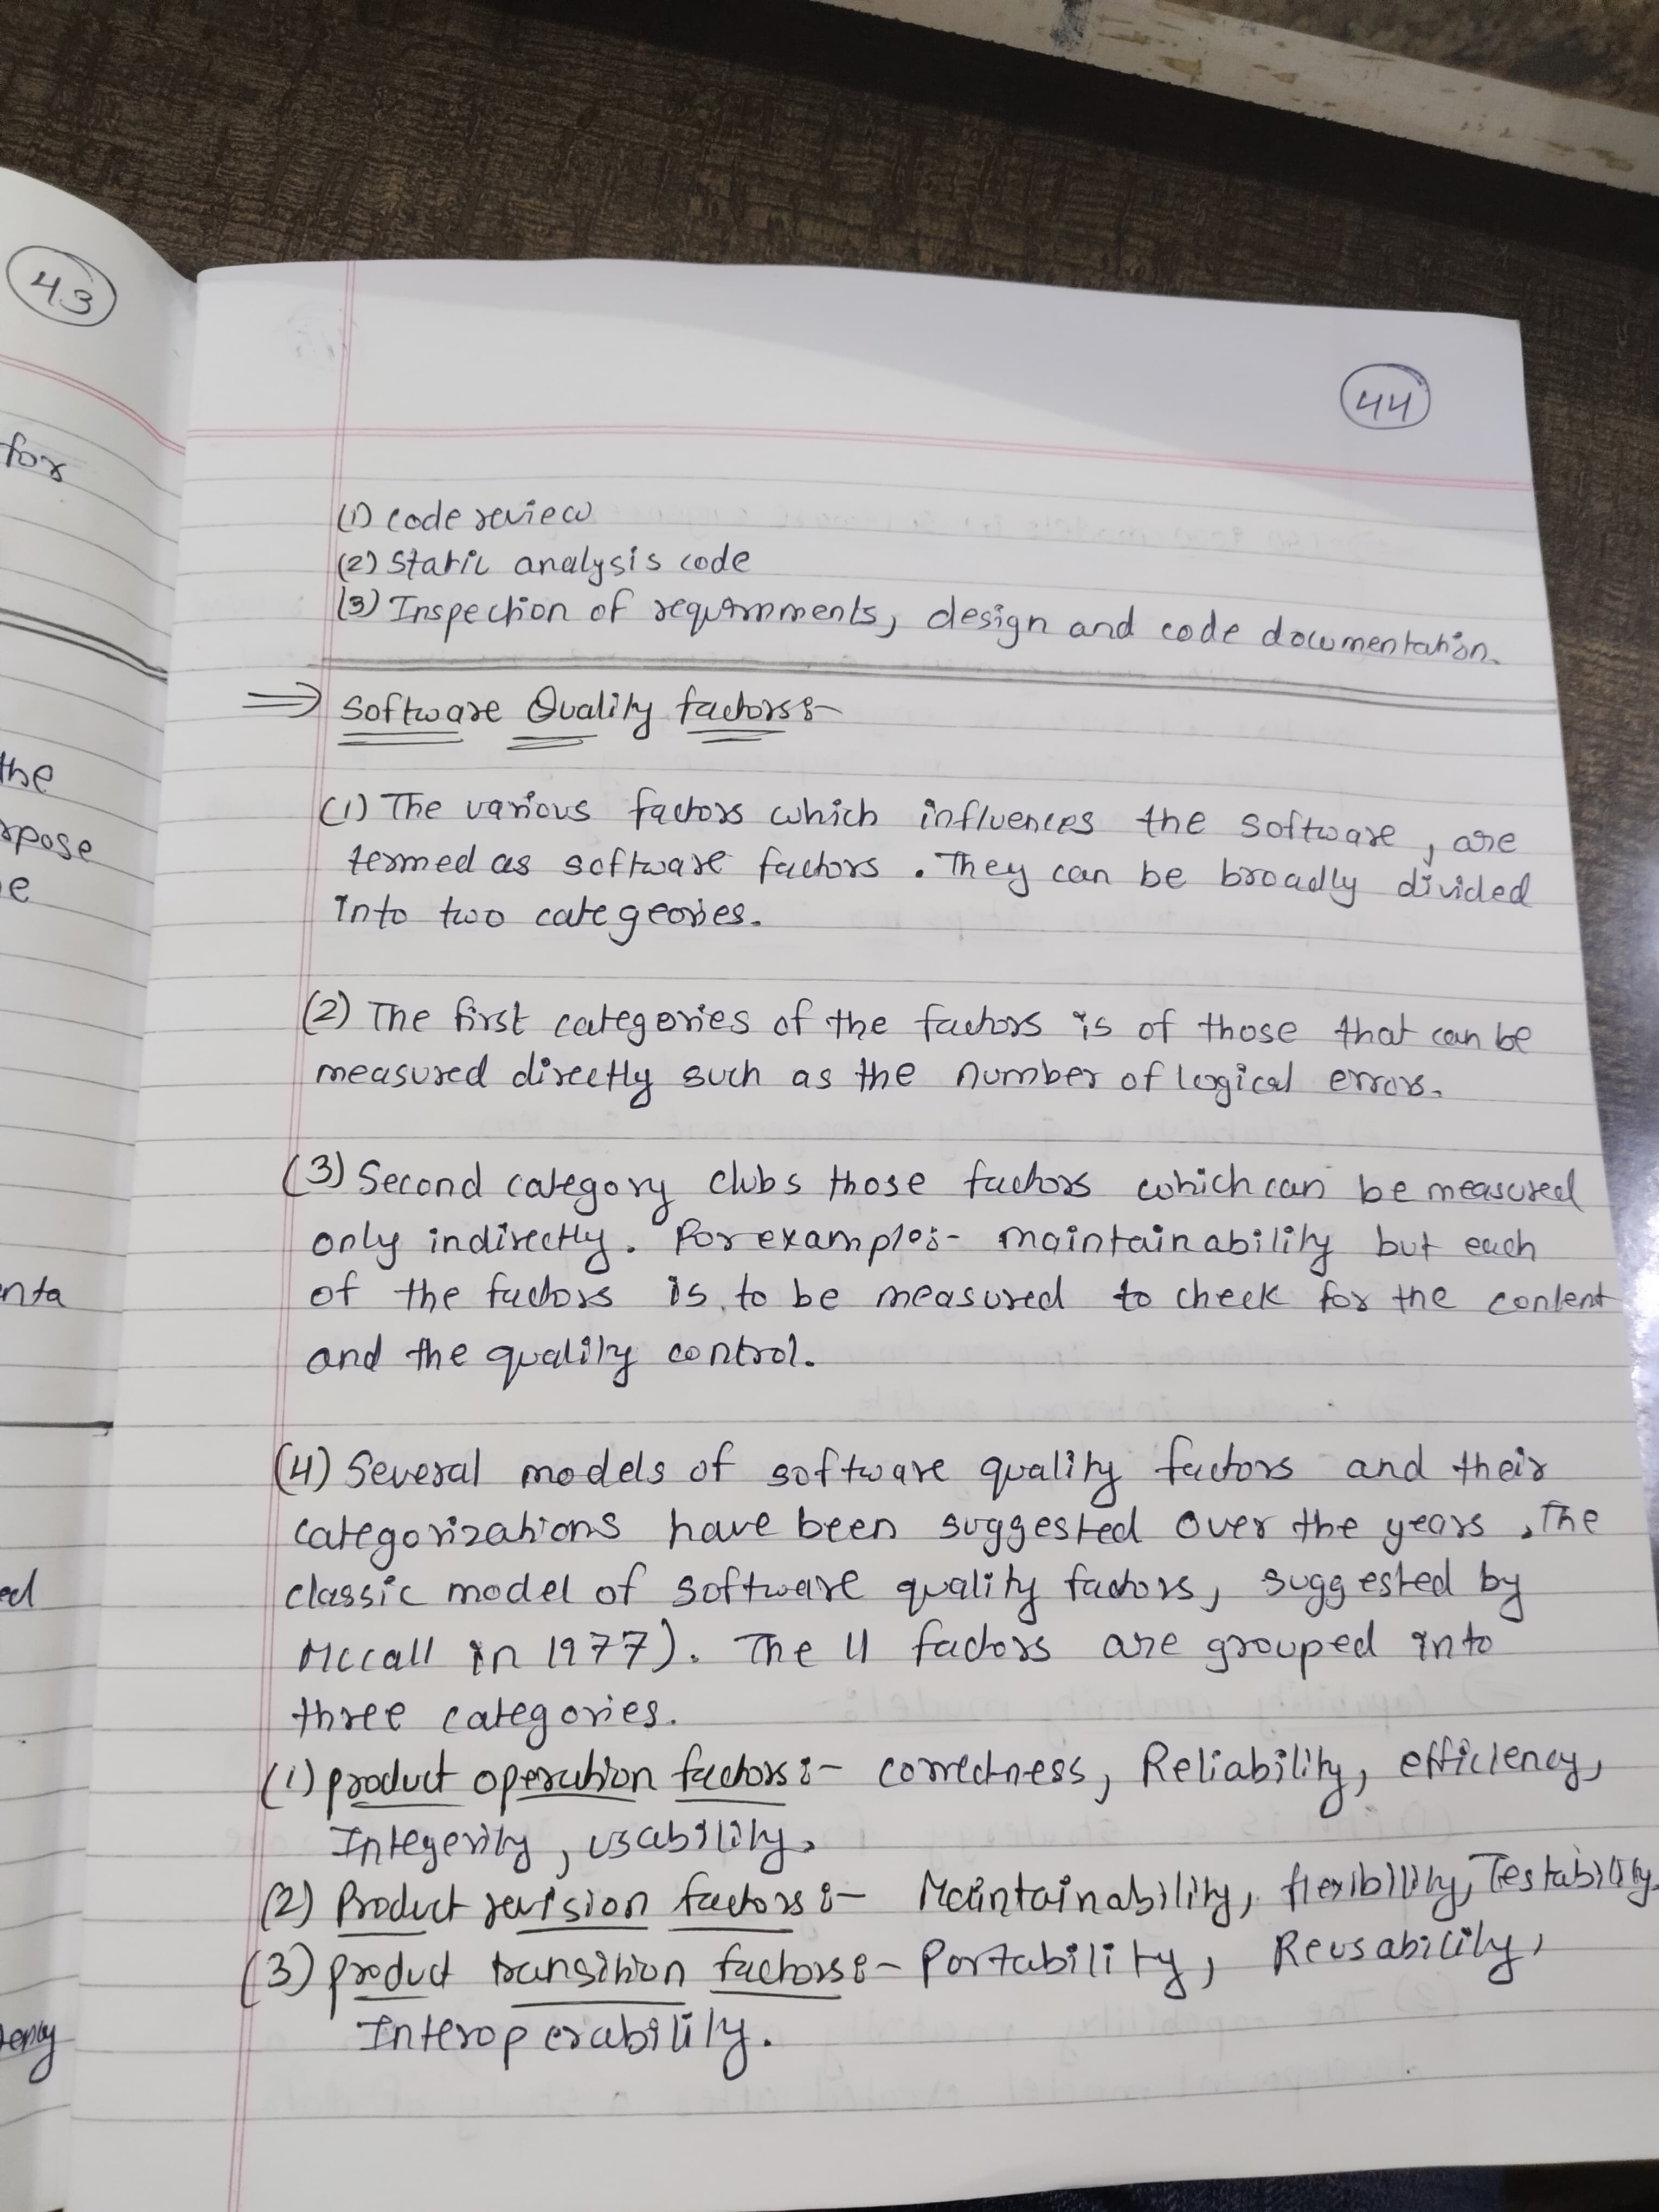 43
for
the
rpose
e
nta
ed
44
(1) code review
(2) Static analysis code
(3) Inspection of requirnments, design and code documentation.
⇒ Software Quality factors:-
(1) The various factors which influences the software, are
termed as software factors. They can be broadly divided
into two categeories.
(2) The first categories of the factors is of those that can be
measured directly such as the number of logical errors.
(3) Second category clubs those factors which can be measured
only indirectly. For example:- maintainability but each
of the factors is to be measured to check for the content
and the quality control.
(4) Several models of software quality factors and their
categorizations have been suggested over the years, The
classic model of software quality factors, suggested by
Mccall in 1977). The 11 factors are grouped into
three categories.
(1) product operation factors:- correctness, Reliability, efficiency,
Integerity, usability,
(2) Product revision factors:- Maintainability, flexibility, Testability.
(3) product transition factors:- Portability, Reusability,
Interoperability.